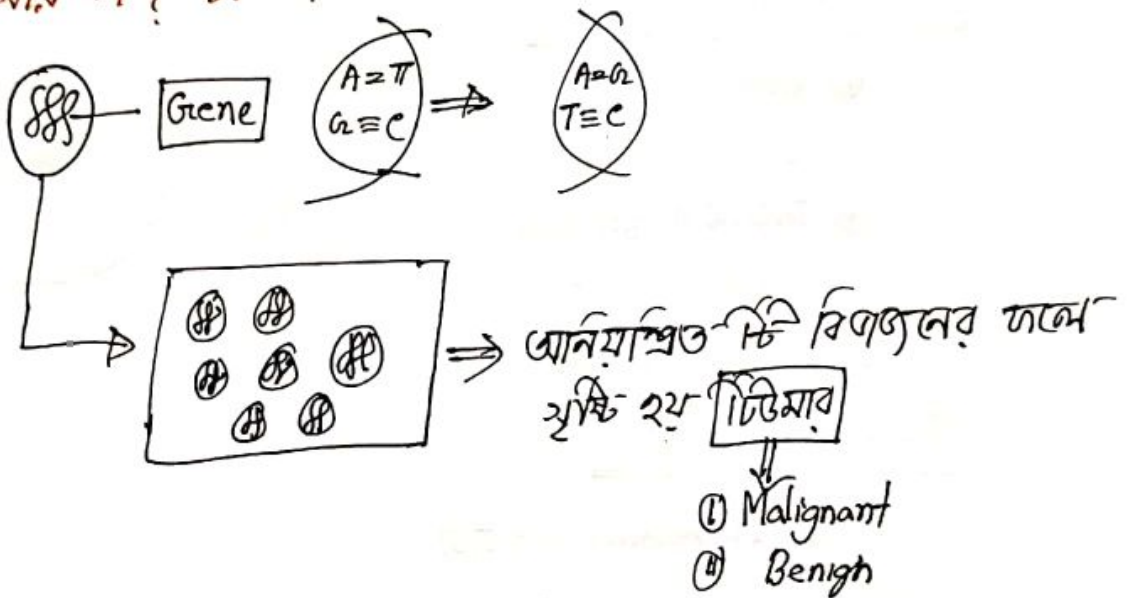 Gene
A = T
G ≡ C
A = G
T ≡ C
অনিয়ন্ত্রিত টি বিভাজনের ফলে
সৃষ্টি হয় টিউমার
① Malignant
② Benign